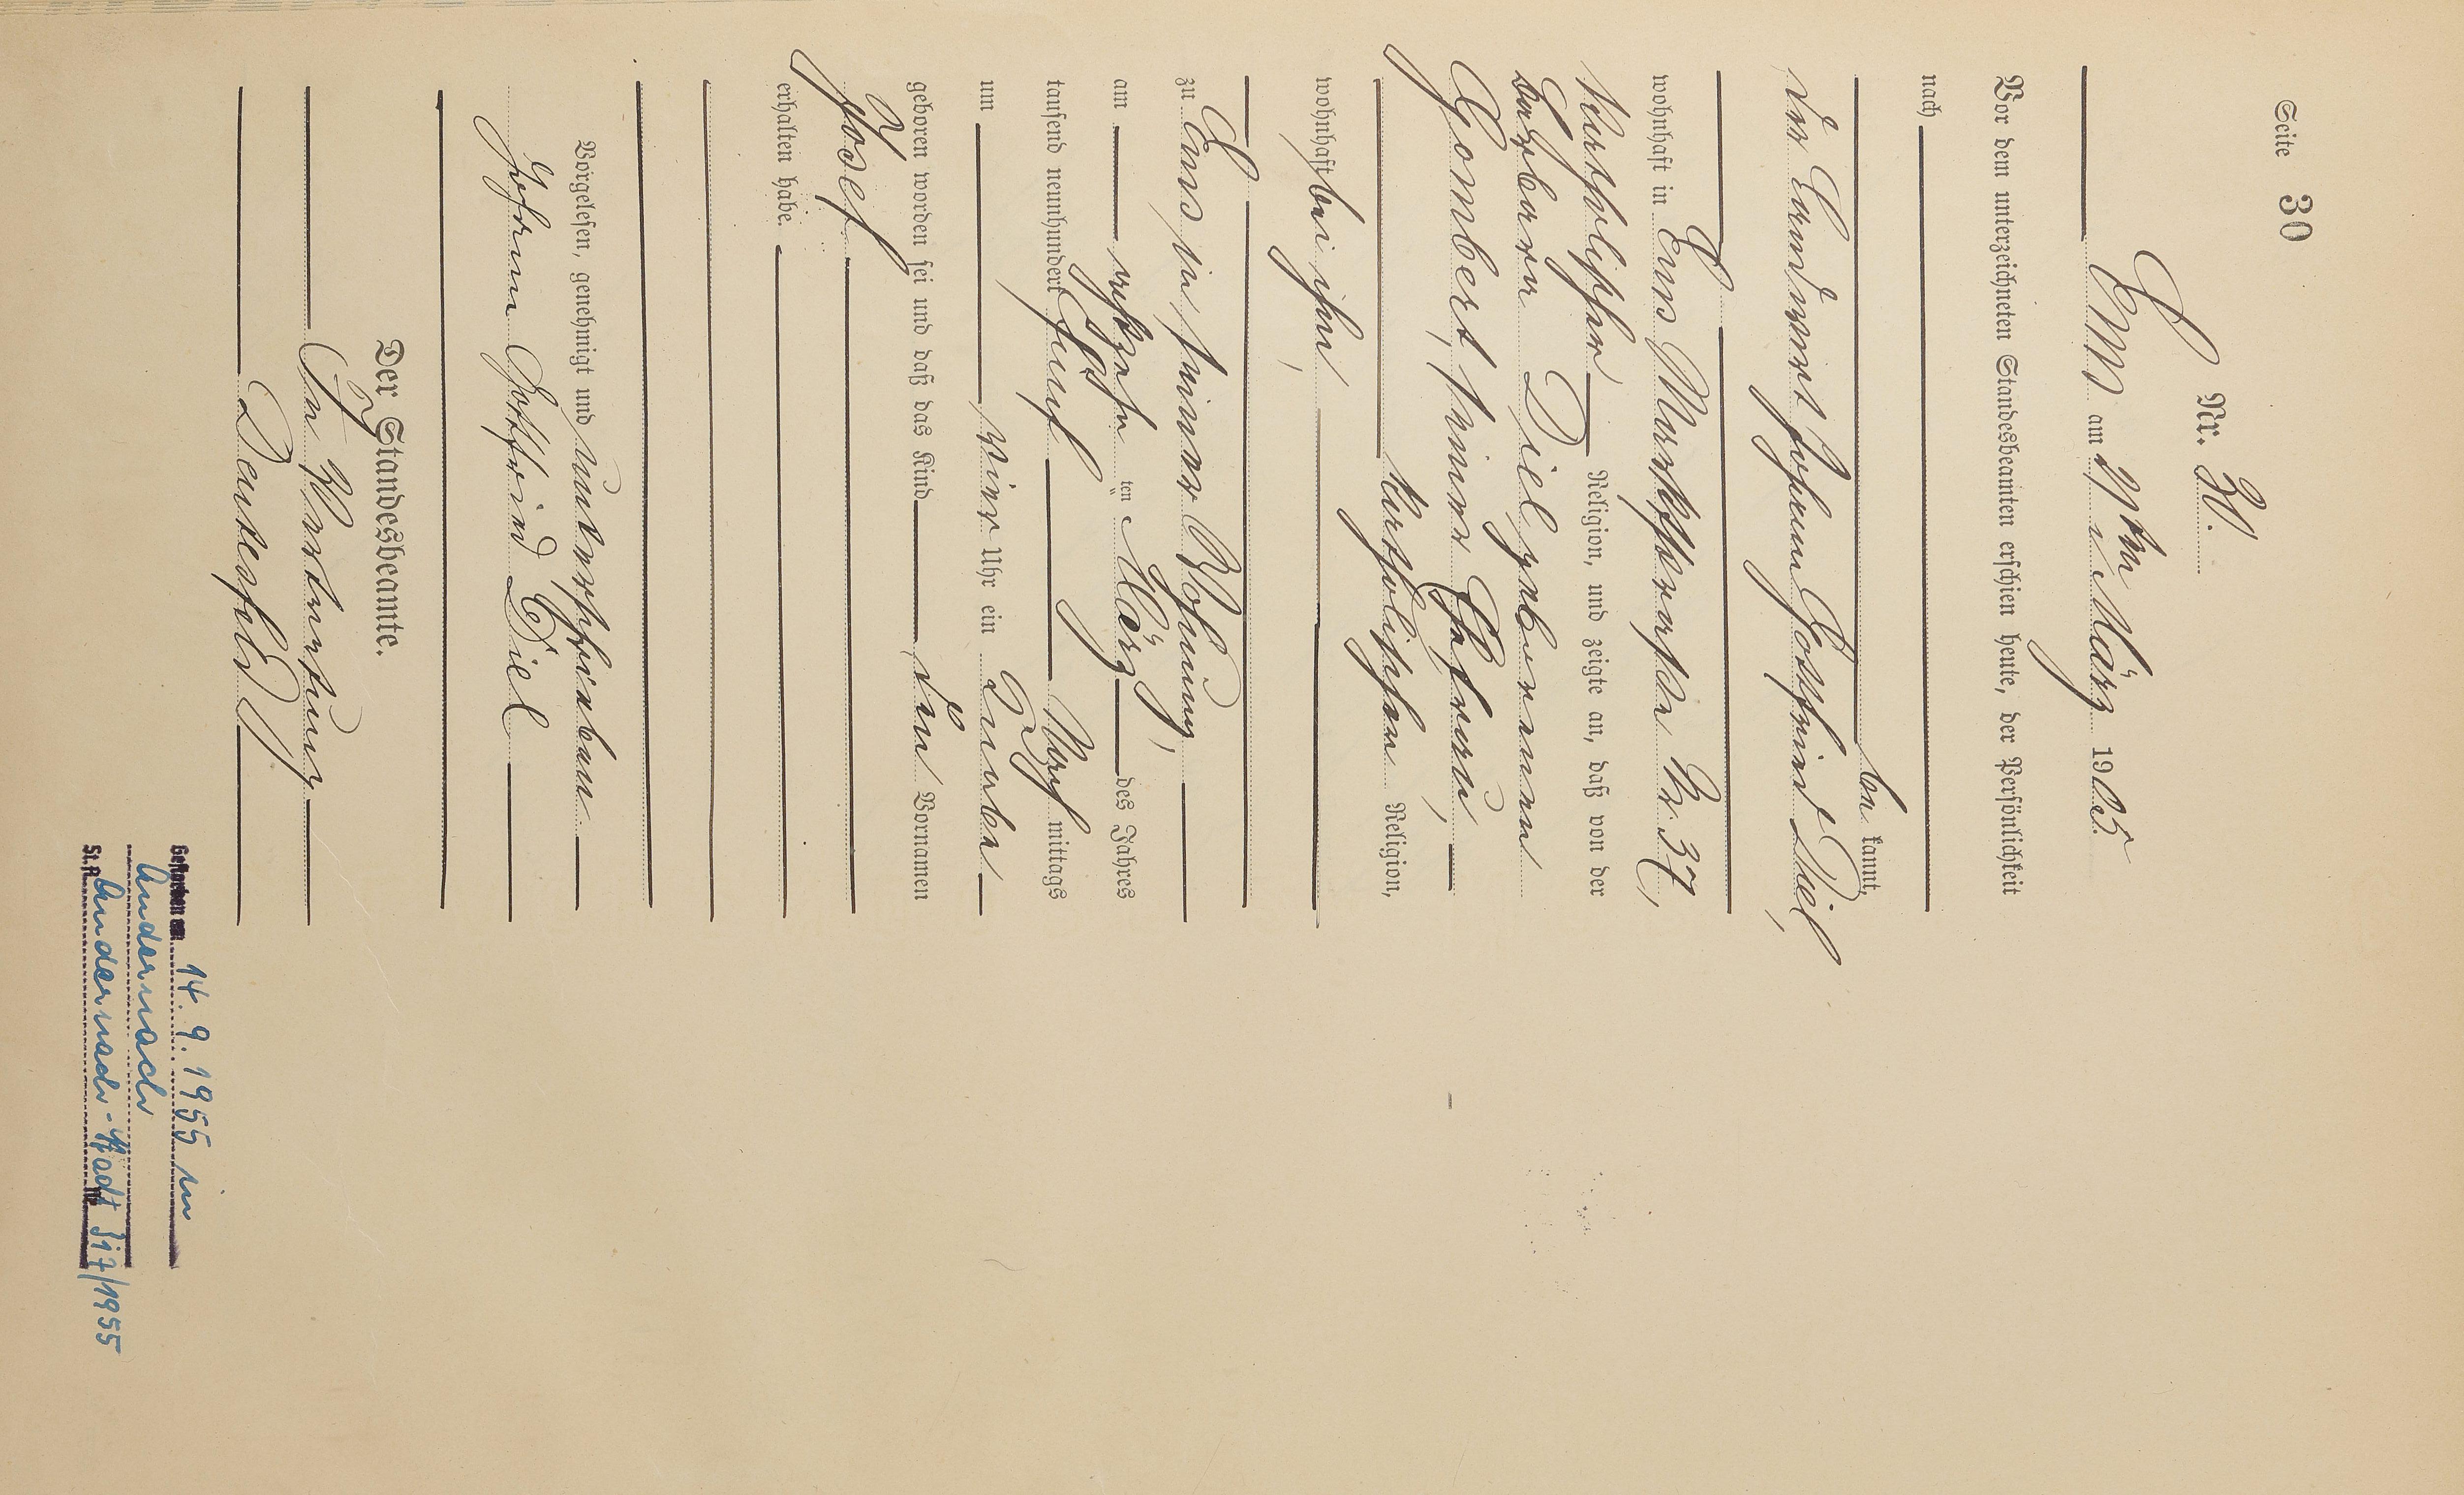 Seite 30
Nr. 30.
Ems am 21ten März 1905
Vor dem unterzeichneten Standesbeamten erschien heute, der Persönlichkeit
nach
be kannt,
der Landwirt Johann Gottfried Diel,
wohnhaft in Ems Marktstraße Nr. 37,
katholischer Religion, und zeigte an, daß von der
Barbara Diel geborenen
Gombert, seiner Ehefrau,
katholischen Religion,
wohnhaft bei ihm,
zu Ems in seiner Wohnung,
am achtzehnten März des Jahres
tausend neunhundert fünf Nach mittags
um vier Uhr ein Knabe
geboren worden sei und daß das Kind den Vornamen
Josef
erhalten habe.
Vorgelesen, genehmigt und unterschrieben
Johann Gottfried Diel
Der Standesbeamte.
In Vertretung
Gestorben am 14. 9. 1955 in
Andernach
St. A. Andernach-Stadt Nr. 317/1955